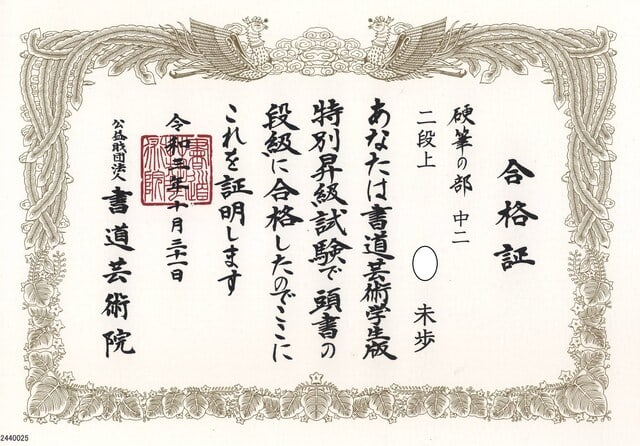 合格証
硬筆の部 中二
二段上 未歩
あなたは書道芸術学生版
特別昇級試験で頭書の
段級に合格したのでここに
これを証明します
令和三年十月三十一日
公益財団法人 書道芸術院
2440025